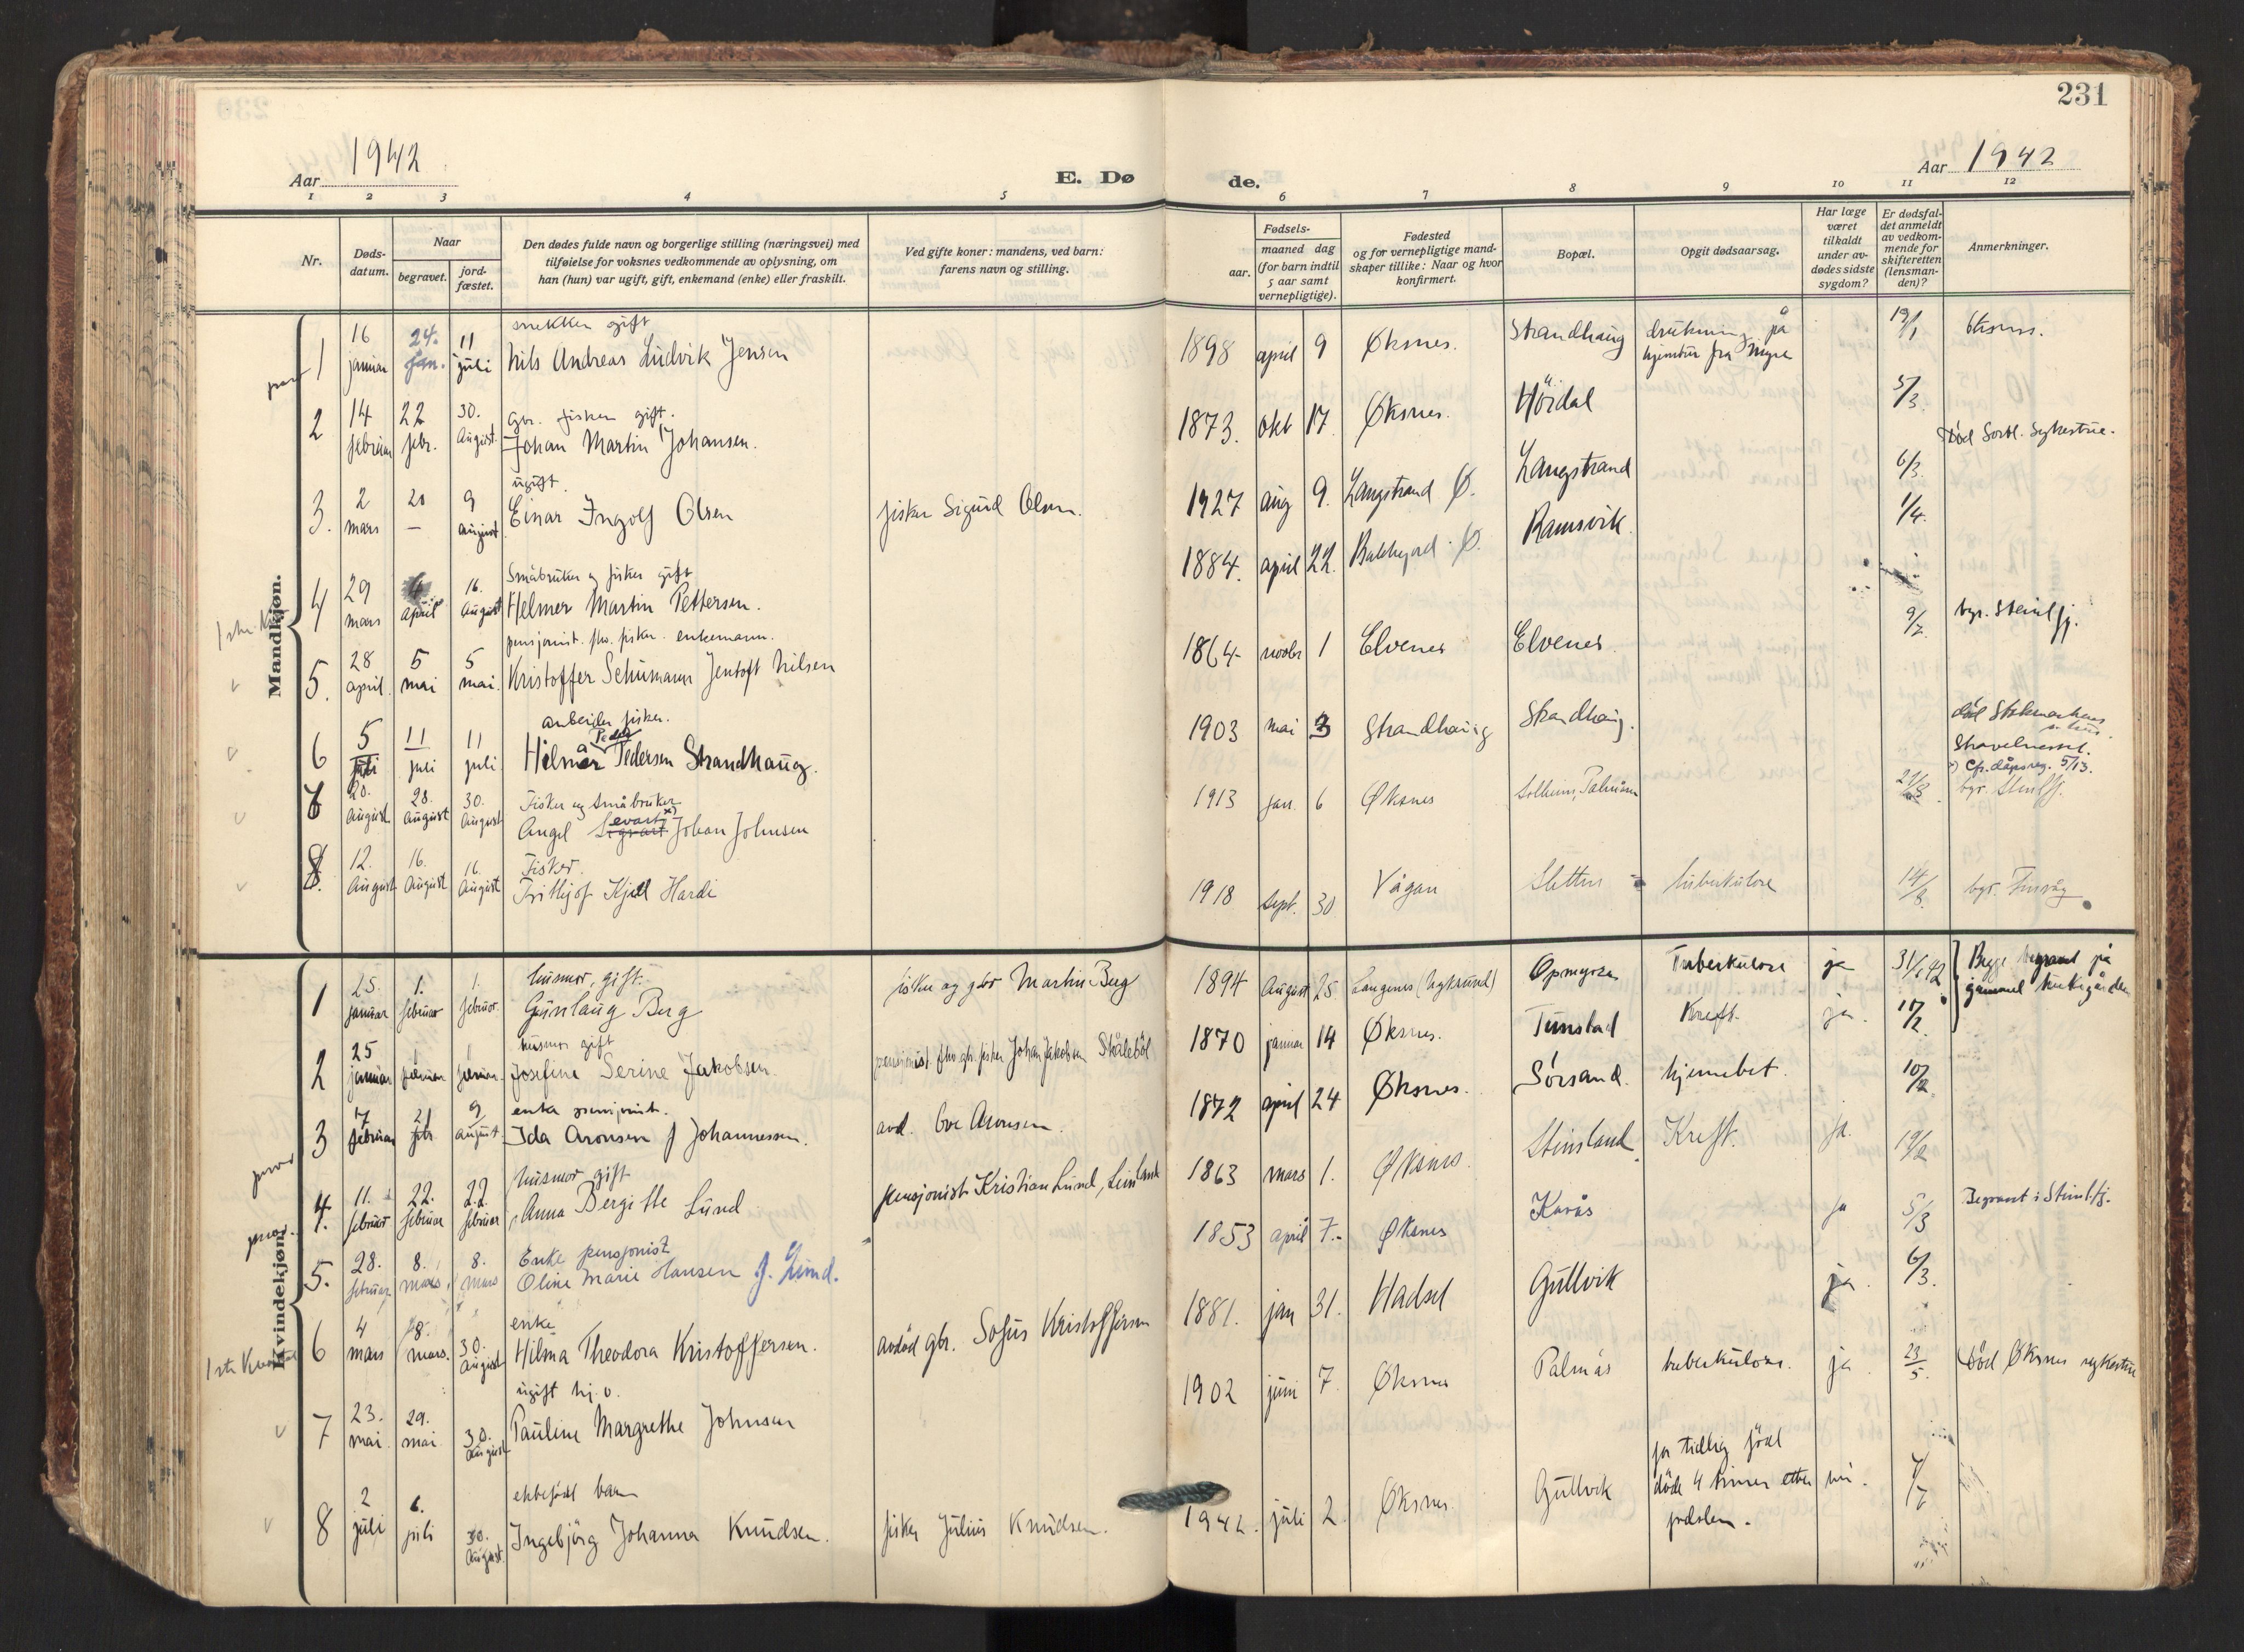 231
Aar 1942
E. Dø
de.
Aar 1942
1 2 3 4 5 6 7 8 9 10 11 12
Nr.
Døds-
datum.
Naar
begravet.
jord-
fæstet.
Den dødes fulde navn og borgerlige stilling (næringsvei) med
tilføielse for voksnes vedkommende av oplysning, om
han (hun) var ugift, gift, enkemand (enke) eller fraskilt.
Ved gifte koner: mandens, ved barn:
farens navn og stilling.
Fødsels-
aar.
maaned dag
(for barn indtil
5 aar samt
vernepligtige).
Fødested
og for vernepligtige mand-
skaper tillike: Naar og hvor
konfirmert.
Bopæl.
Opgit dødsaarsag.
Har læge
været
tilkaldt
under av-
dødes sidste
sygdom?
Er dødsfal-
det anmeldt
av vedkom-
mende for
skifteretten
(lensman-
den)?
Anmerkninger.
Mandkjøn.
1 16 januar 24. jan. 11 juli
snekker gift
Nils Andreas Ludvik Jensen
1898 april 9 Øksnes. Strandhaug drukning på
hjemtur fra Myre
19/1
2 14 februar 22 febr. 30. August.
gbr. fisker gift.
Johan Martin Johansen.
1873. okt 17 Øksnes. Höidal 5/3.
Död Sortl. Sykestue.
3. 2 mars 20 — 9 august
ugift.
Einar Ingolf Olsen
fisker Sigurd Olsen.
1927 aug 9. Langstrand Ø. Langstrand 6/3.
4 29 mars april 16. August
Småbruker og fisker gift
Helmer Martin Pettersen.
1884. april 22. Ø. Ramsvik. 1/4.
5. 28 april. 5 mai 5 mai.
pensjonist. fhv. fisker. enkemann.
Kristoffer Schumann Jentoft Nilsen
1864 novbr 1 Elvenes Elvenes 9/7.
bgr. Steinlfj.
6 5 juli 11 juli 11 juli
arbeider fisker.
Hilmar Pedersen Strandhaug.
1903 mai 3 Strandhaug Strandhaug.
död Stokmarknes
s. hus.
x) Cfr. dåpsreg. 5/13.
7 20. August 28. August 30. August
Fisker og småbruker
Angel Sigvart evart x) Johan Johnsen
1913 jan. 6 Øksnes Solheim, Palmåsen
bgr. Steinlfj.
8. 12. August 16. August 16. August
Fisker.
Frithjof Kjell Hardi
1918 Sept. 30 Vågan Sletten tuberkulose 14/8.
bgr. Finvåg
Kvindekjøn.
1 25. januar 1. februar 1. februar.
husmor, gift.
Gunlaug Berg
fisker og gbr Martin Berg
1894 August 25. Langenes Opmyren Tuberkulose ja 31/1 42
Begge begravet på
gammel kirkegården
2 25 januar 1 februar 1 februar.
husmor gift
Josefine Serine Jakobsen
pensjonist fhv. gbr. fisker Johan Jakobsen Skåleböl
1870 januar 14 Øksnes. Tunstad Kreft. ja.
3 17 februar 21 febr 9 august
enke pensjonist.
Ida Aronsen f Johannessen.
avd. Ove Aronsen.
1872 april 24 Øksnes. Sörsand. hjernebet. 10/2
4. 11. februar 22. februar 22. februar
husmor gift
Anna Bergitte Lund
pensjonist Kristian Lund, Steinland
1863 mars 1. Øksnes. Steinsland Kreft. ja. 19/2
5. 28. februar 8. mars 8. mars
Enke pensjonist
Oline Marie Hansen f. Lund.
1853 april 7. Øksnes Kavås ja 5/3
Begravet i Steinlfj.
6 4 mars 18. mars. 30. August
enke
Hilma Theodora Kristoffersen.
avdöd gbr. Sofus Kristoffersen
1881. jan 31. Hadsel Gullvik ja. 6/3.
7 23. mai 29. mai 30. August
ugift hj. v.
Pauline Margrethe Johnsen
1902 juni 7. Øksnes Palmås tuberkulose. ja 23/5.
Död Øksnes sykestue
8 2 juli 6. juli 30. August.
ektefödt barn
Ingebjörg Johanna Knudsen.
fisker Julius Knudsen.
1942. juli 2. Øksnes. Gullvik
for tidlig född
döde 4 timer etter
födslen.
nei. 7/7